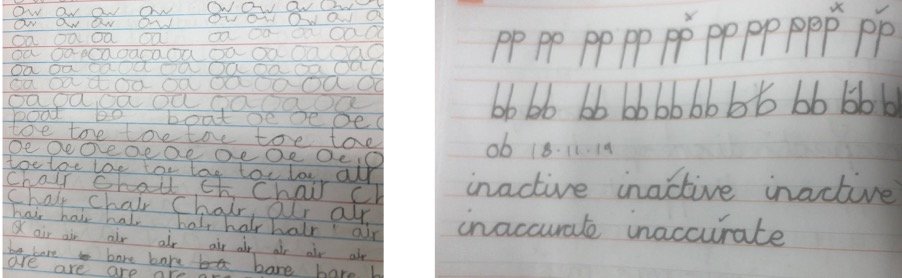 ow ow ow ow ow ow ow ow ow
ow ow ow ow ow ow ow ow
oa oa oa oa oa oa oa oa oa
oa oa oa oa oa oa oa oa oa oa oa
oa oa oa oa oa oa oa oa oa
oa oa oa oa oa oa oa oa oa
oa oa oa oa oa oa oa
boat bo boat oe oe oe
toe toe toe toe toe toe
oe oe oe oe oe oe oe oe
toe toe toe toe toe toe toe air
chair chair ch chair ch
chair chair chair air air
hair hair hair hair hair hair air
air air air air air air air air air
bare bare bare bare bare
are are are are are are
pp pp pp pp pp pp pp ppp pp
bb bb bb bb bb bb bb bb bb b
ob 18.11.19
inactive inactive inactive
inaccurate inaccurate